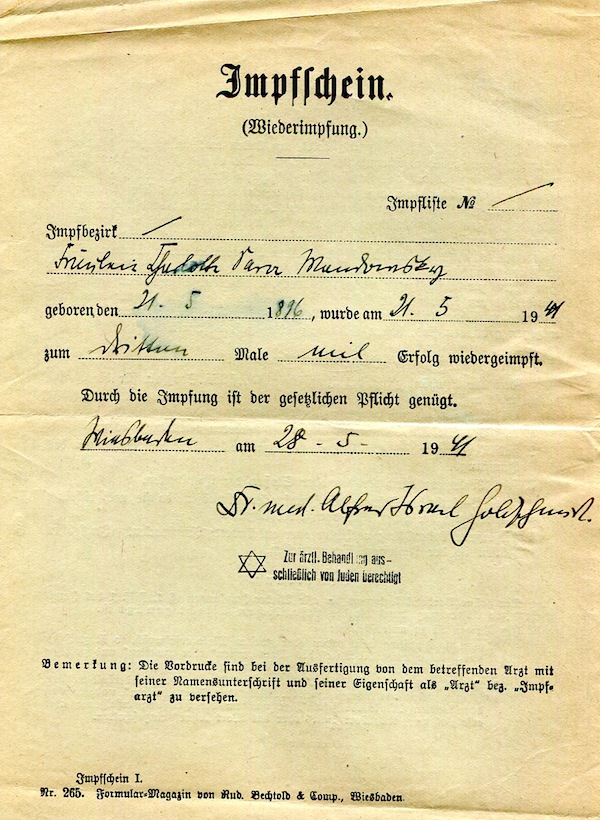 Impfschein.
(Wiederimpfung.)
Impfliste №
Impfbezirk
Fräulein Sara Mandowsky
geboren den 21. 5 1896, wurde am 21. 5 1941
zum dritten Male mit Erfolg wiedergeimpft.
Durch die Impfung ist der gesetzlichen Pflicht genügt.
Wiesbaden am 28 - 5 - 1941
Dr. med. Alfred Israel Goldschmidt.
Zur ärztl. Behandlung aus-
schließlich von Juden berechtigt
Bemerkung: Die Vordrucke sind bei der Ausfertigung von dem betreffenden Arzt mit
seiner Namensunterschrift und seiner Eigenschaft als „Arzt" bez. „Impf-
arzt" zu versehen.
Impfschein I.
Nr. 265. Formular-Magazin von Rud. Bechtold & Comp., Wiesbaden.